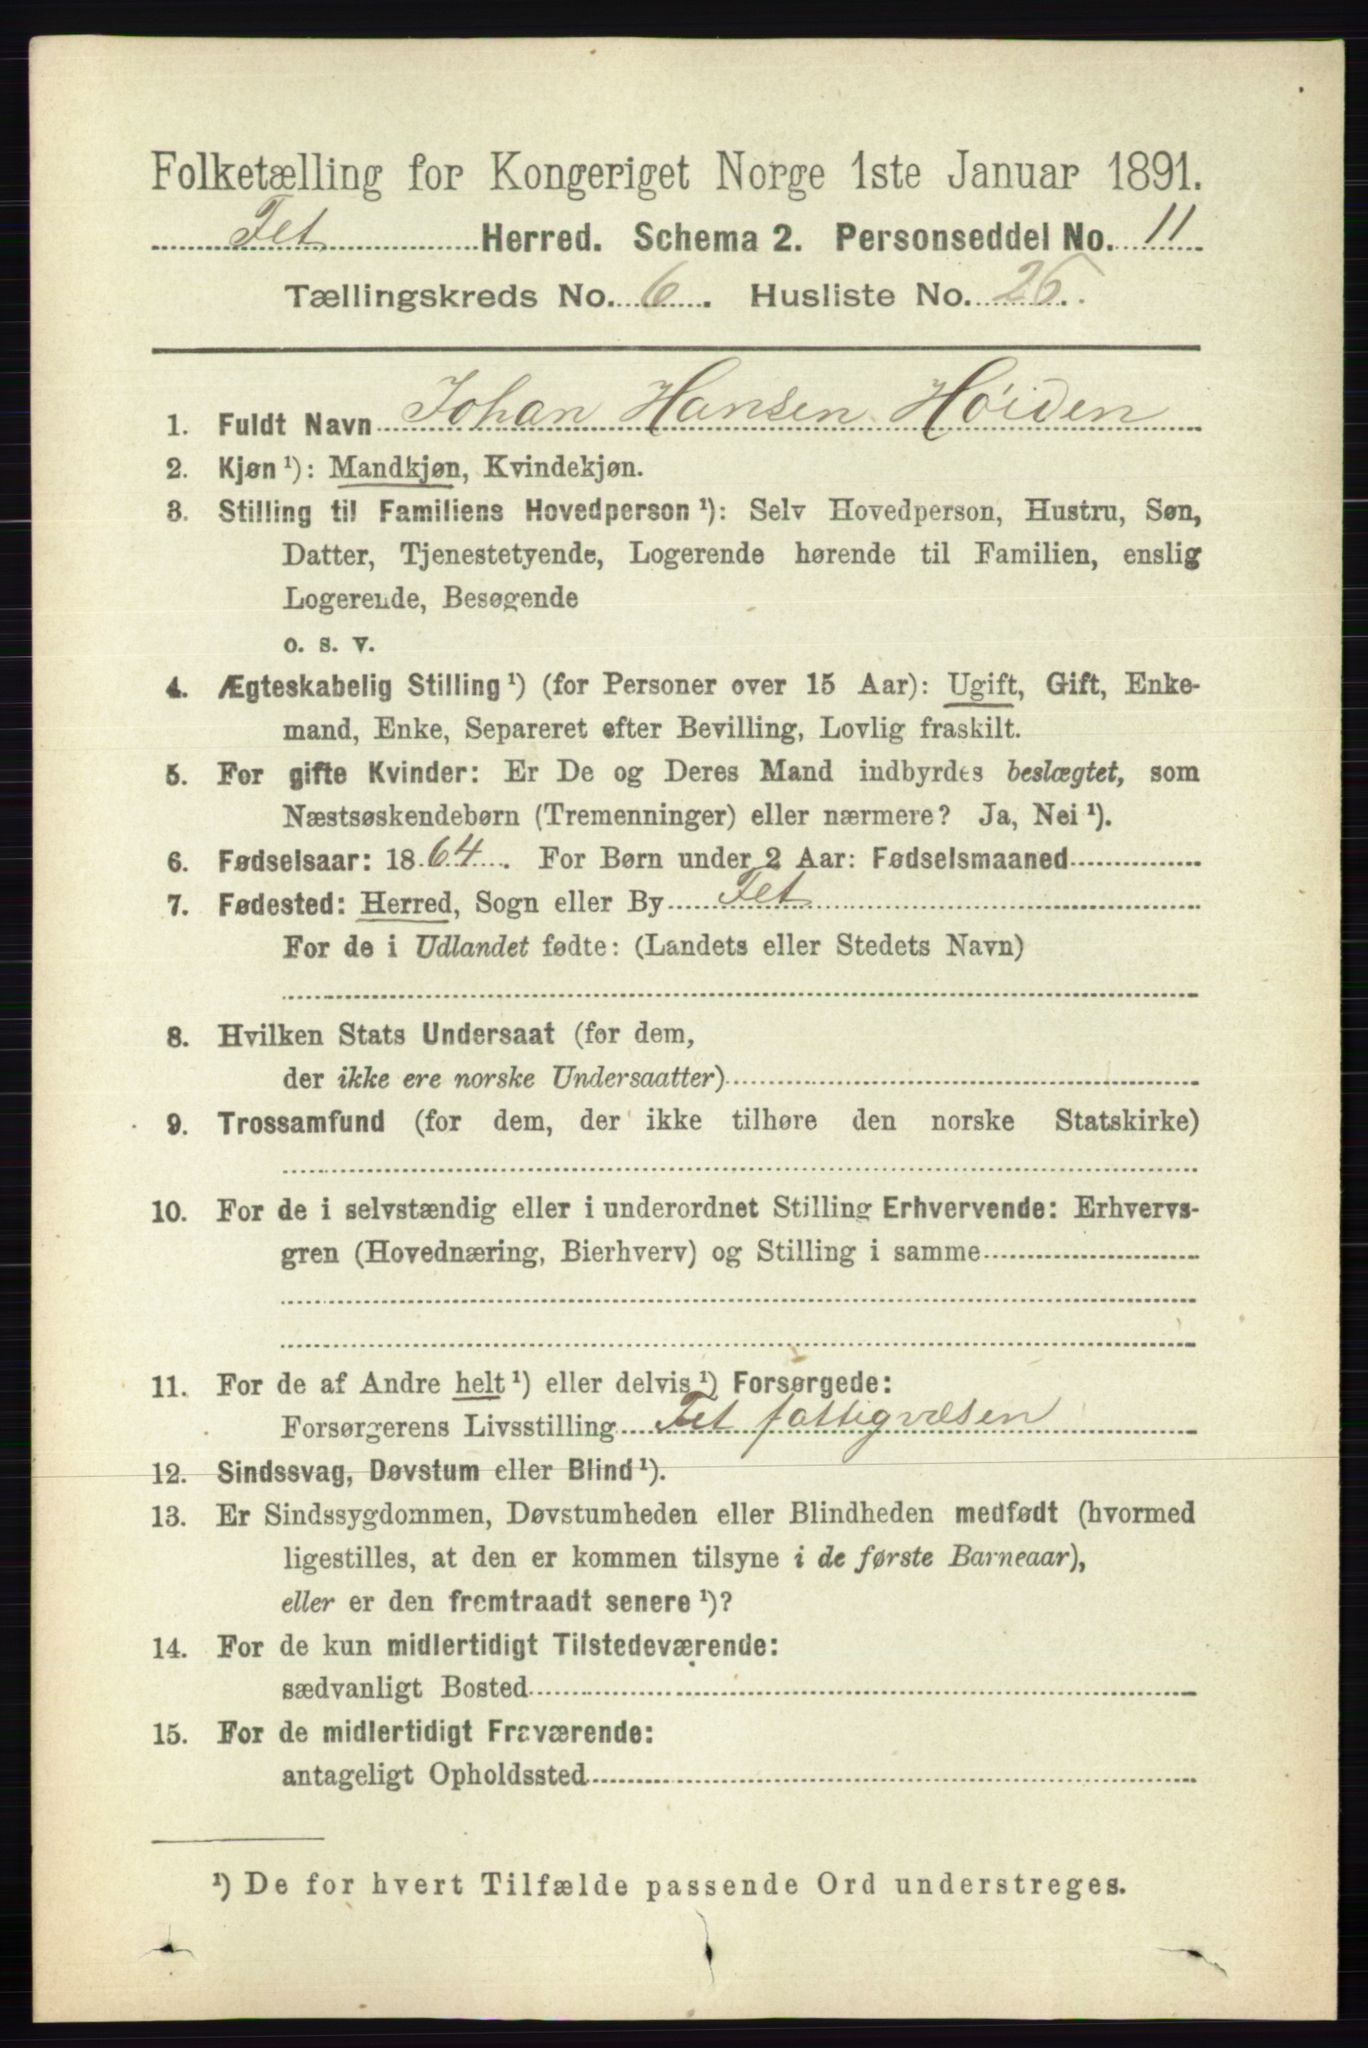 Folketælling for Kongeriget Norge 1ste Januar 1891.
Fet Herred. Schema 2. Personseddel No. 11
Tællingskreds No. 6. Husliste No. 26.
1. Fuldt Navn Johan Hansen Høiden
2. Kjøn ¹): Mandkjøn, Kvindekjøn.
3. Stilling til Familiens Hovedperson ¹): Selv Hovedperson, Hustru, Søn,
Datter, Tjenestetyende, Logerende hørende til Familien, enslig
Logerende, Besøgende
o. s. v.
4. Ægteskabelig Stilling ¹) (for Personer over 15 Aar): Ugift, Gift, Enke-
mand, Enke, Separeret efter Bevilling, Lovlig fraskilt.
5. For gifte Kvinder: Er De og Deres Mand indbyrdes beslægtet, som
Næstsøskendebørn (Tremenninger) eller nærmere? Ja, Nei ¹).
6. Fødselsaar: 1864. For Børn under 2 Aar: Fødselsmaaned
7. Fødested: Herred, Sogn eller By Fet
For de i Udlandet fødte: (Landets eller Stedets Navn)
8. Hvilken Stats Undersaat (for dem,
der ikke ere norske Undersaatter)
9. Trossamfund (for dem, der ikke tilhøre den norske Statskirke)
10. For de i selvstændig eller i underordnet Stilling Erhvervende: Erhvervs-
gren (Hovednæring, Bierhverv) og Stilling i samme
11. For de af Andre helt ¹) eller delvis ¹) Forsørgede:
Forsørgerens Livsstilling Fet fattigvæsen
12. Sindssvag, Døvstum eller Blind ¹).
13. Er Sindssygdommen, Døvstumheden eller Blindheden medfødt (hvormed
ligestilles, at den er kommen tilsyne i de første Barneaar),
eller er den fremtraadt senere ¹)?
14. For de kun midlertidigt Tilstedeværende:
sædvanligt Bosted
15. For de midlertidigt Fraværende:
antageligt Opholdssted
¹) De for hvert Tilfælde passende Ord understreges.